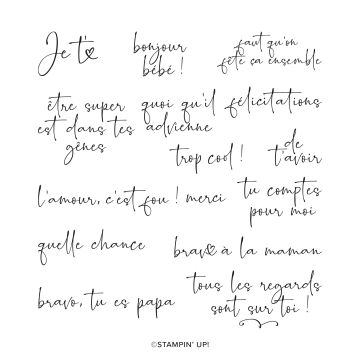 Je t'
bonjour
bébé !
faut qu'on
fête ça ensemble
être super
est dans tes
gênes
quoi qu'il
advienne
félicitations
trop cool !
de
t'avoir
l'amour, c'est fou !
merci
tu comptes
pour moi
quelle chance
bravo à la maman
bravo, tu es papa
tous les regards
sont sur toi !
©STAMPIN' UP!